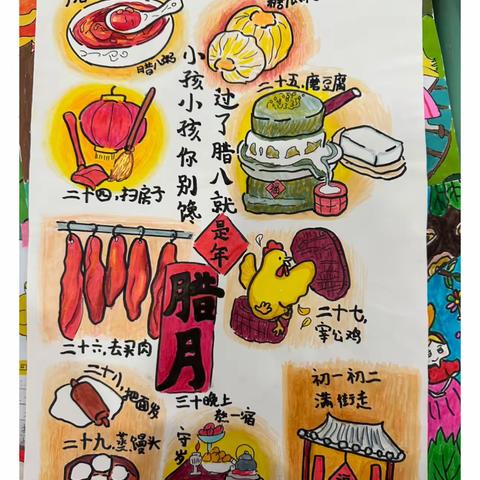 腊八粥
小孩小孩你别馋
过了腊八就
是年
二十五,磨豆腐
二十四,扫房子
腊月
二十六,去买肉
二十七,
宰公鸡
二十八,把面发
二十九,蒸馒头
三十晚上
熬一宿
守岁
初一初二
满街走